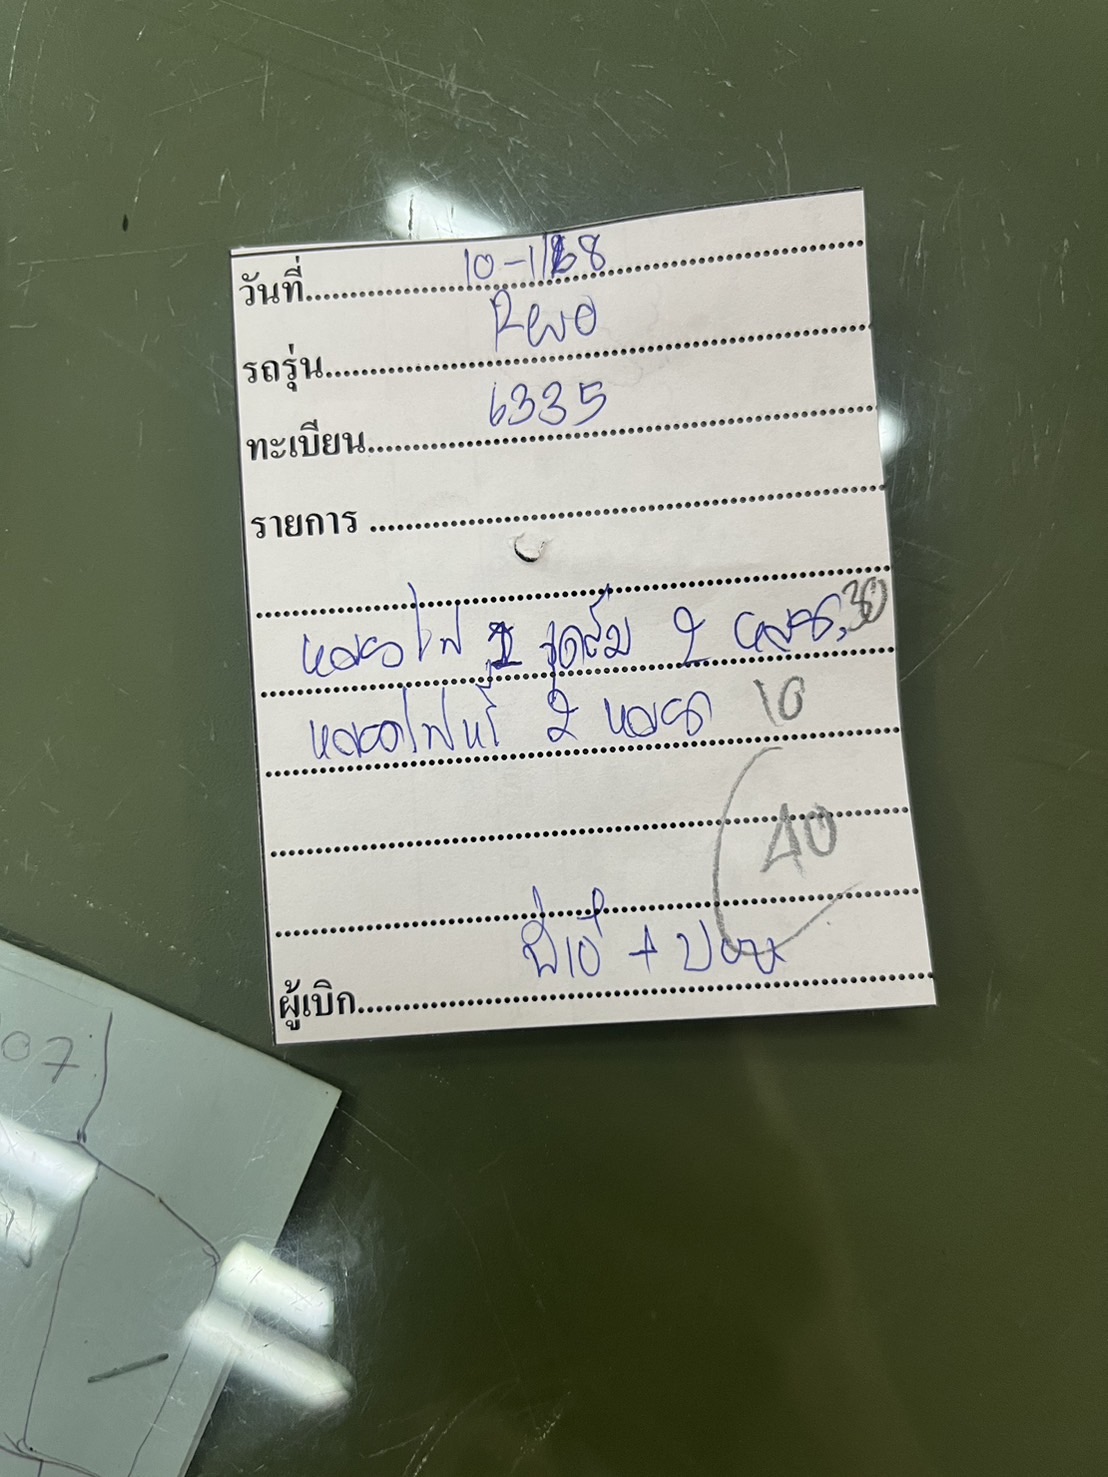 วันที่ 10-1/68
รถรุ่น Revo
ทะเบียน 6335
รายการ
หลอดไฟ จุดส้ม 2 หลอด 30
หลอดไฟหรี่ 2 หลอด 10
40
ผู้เบิก +
07